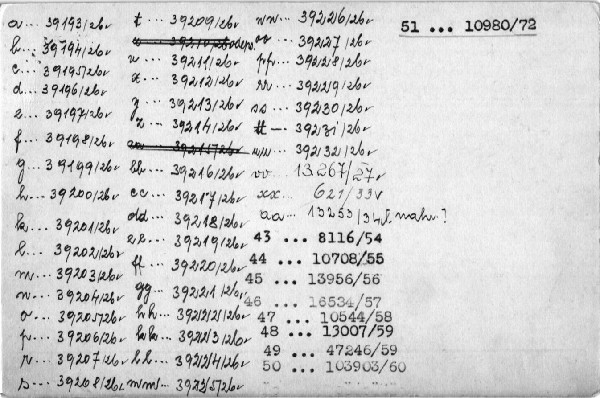 a... 39193/26v
b... 39194/26v
c... 39195/26v
d... 39196/26v
e... 39197/26v
f... 39198/26v
g... 39199/26v
h... 39200/26v
k... 39201/26v
l... 39202/26v
m... 39203/26v
n... 39204/26v
o... 39205/26v
p... 39206/26v
r... 39207/26v
s... 39208/26v
t... 39209/26v
v... 39211/26v
x... 39212/26v
y... 39213/26v
z... 39214/26v
bb... 39216/26v
cc... 39217/26v
dd... 39218/26v
ee... 39219/26v
ff... 39220/26v
gg... 39221/26v
hh... 39222/26v
kk... 39223/26v
ll... 39224/26v
mm... 39225/26v
nn... 39226/26v
oo... 39227/26v
pp... 39228/26v
rr... 39229/26v
ss... 39230/26v
tt... 39231/26v
uu... 39232/26v
vv... 13267/27v
xx... 621/33v
aa... 13253/34
43 ... 8116/54
44 ... 10708/55
45 ... 13956/56
46 ... 16534/57
47 ... 10544/58
48 ... 13007/59
49 ... 47246/59
50 ... 103903/60
51 ... 10980/72